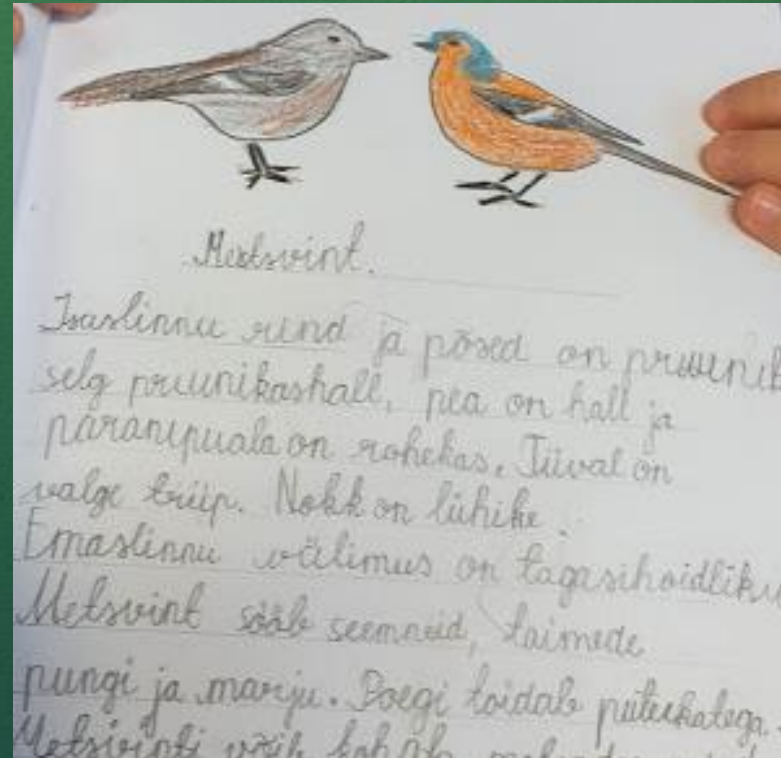 Metsvint.
Isaslinnu rind ja põsed on pruunik
selg pruunikashall, pea on hall ja
päranipuala on rohekas. Tiival on
valge triip. Nokk on lühike.
Emaslinnu välimus on tagasihoidliku
Metsvint sööb seemneid, taimede
pungi ja marju. Poegi toidab putukatega.
Metsvinti võib kohata